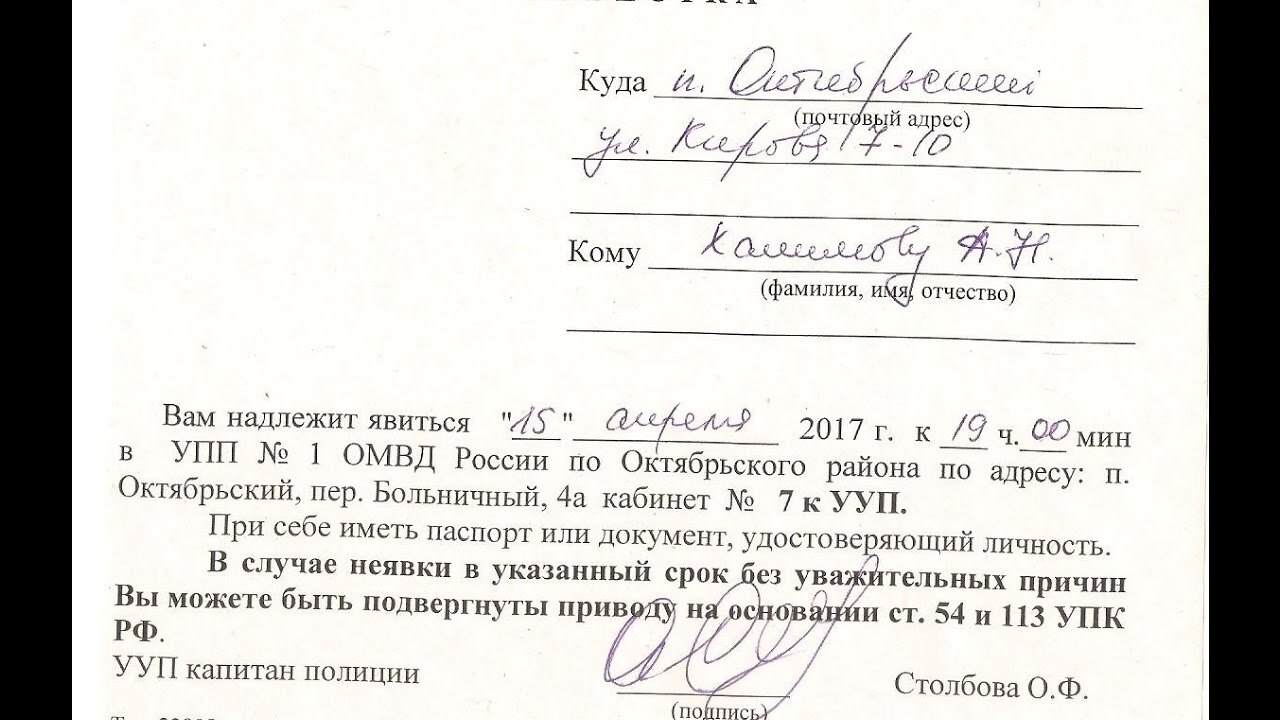 Куда п. Октябрьский
(почтовый адрес)
ул. Кирова 17-10
Кому Халимову А.Н.
(фамилия, имя, отчество)
Вам надлежит явиться "15" апреля 2017 г. к 19 ч. 00 мин
в УПП № 1 ОМВД России по Октябрьского района по адресу: п.
Октябрьский, пер. Больничный, 4а кабинет № 7 к УУП.
При себе иметь паспорт или документ, удостоверяющий личность.
В случае неявки в указанный срок без уважительных причин
Вы можете быть подвергнуты приводу на основании ст. 54 и 113 УПК
РФ.
УУП капитан полиции Столбова О.Ф.
(подпись)